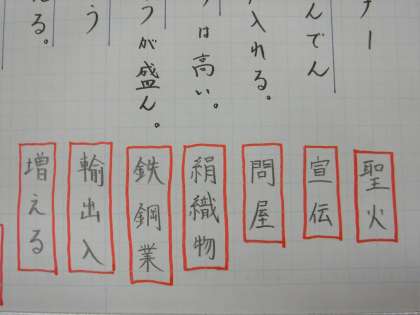 ー
聖火
んでん
宣伝
入れる。
問屋
は高い。
絹織物
うが盛ん。
鉄鋼業
う
輸出入
る。
増える